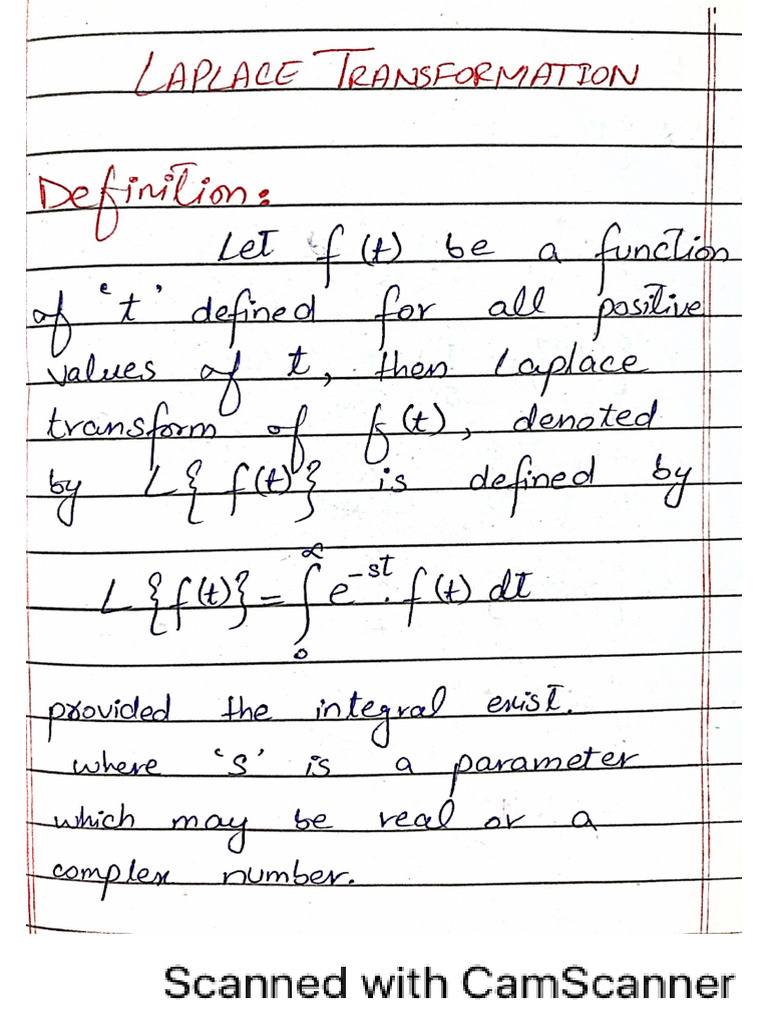 LAPLACE TRANSFORMATION
Definition:
Let f(t) be a function
of 't' defined for all positive
values of t, then Laplace
transform of f(t), denoted
by L{f(t)} is defined by
L{f(t)} = ∫₀^∞ e^-st . f(t) dt
provided the integral exist.
where 's' is a parameter
which may be real or a
complex number.
Scanned with CamScanner